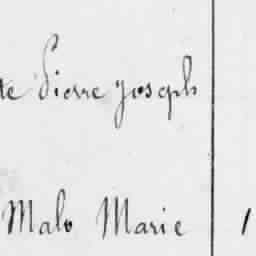 Pierre Joseph
Malo Marie 1